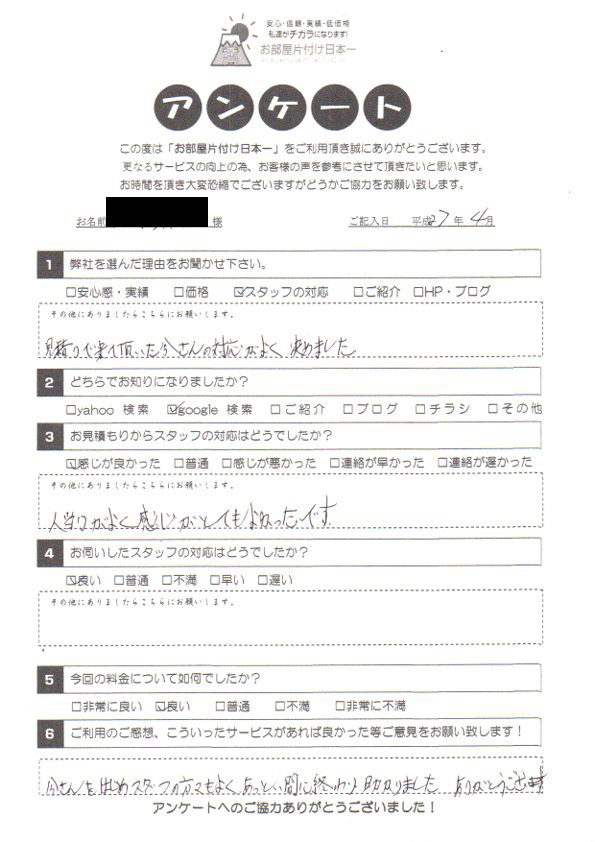 安心・信頼・実績・低価格
私達がチカラになります!
お部屋片付け日本一
アンケート
この度は「お部屋片付け日本一」をご利用頂き誠にありがとうございます。
更なるサービスの向上の為、お客様の声を参考にさせて頂きたいと思います。
お時間を頂き大変恐縮でございますがどうかご協力をお願い致します。
お名前 様 ご記入日 平成27年 4月
1 弊社を選んだ理由をお聞かせ下さい。
□安心感・実績 □価格 ☑スタッフの対応 □ご紹介 □HP・ブログ
その他にありましたらこちらにお願いします。
見積りで来て頂いた さんの対応がよく 決めました
2 どちらでお知りになりましたか?
□yahoo 検索 ☑google 検索 □ご紹介 □ブログ □チラシ □その他
3 お見積もりからスタッフの対応はどうでしたか?
☑感じが良かった □普通 □感じが悪かった □連絡が早かった □連絡が遅かった
その他にありましたらこちらにお願いします。
人当りがよく感じがとてもよかったです
4 お伺いしたスタッフの対応はどうでしたか?
☑良い □普通 □不満 □早い □遅い
その他にありましたらこちらにお願いします。
5 今回の料金について如何でしたか?
□非常に良い ☑良い □普通 □不満 □非常に不満
6 ご利用のご感想、こういったサービスがあれば良かった等ご意見をお願い致します!
さんをはじめスタッフの方々もよく あっとい間に終わり 助かりました ありがとうございます
アンケートへのご協力ありがとうございました!